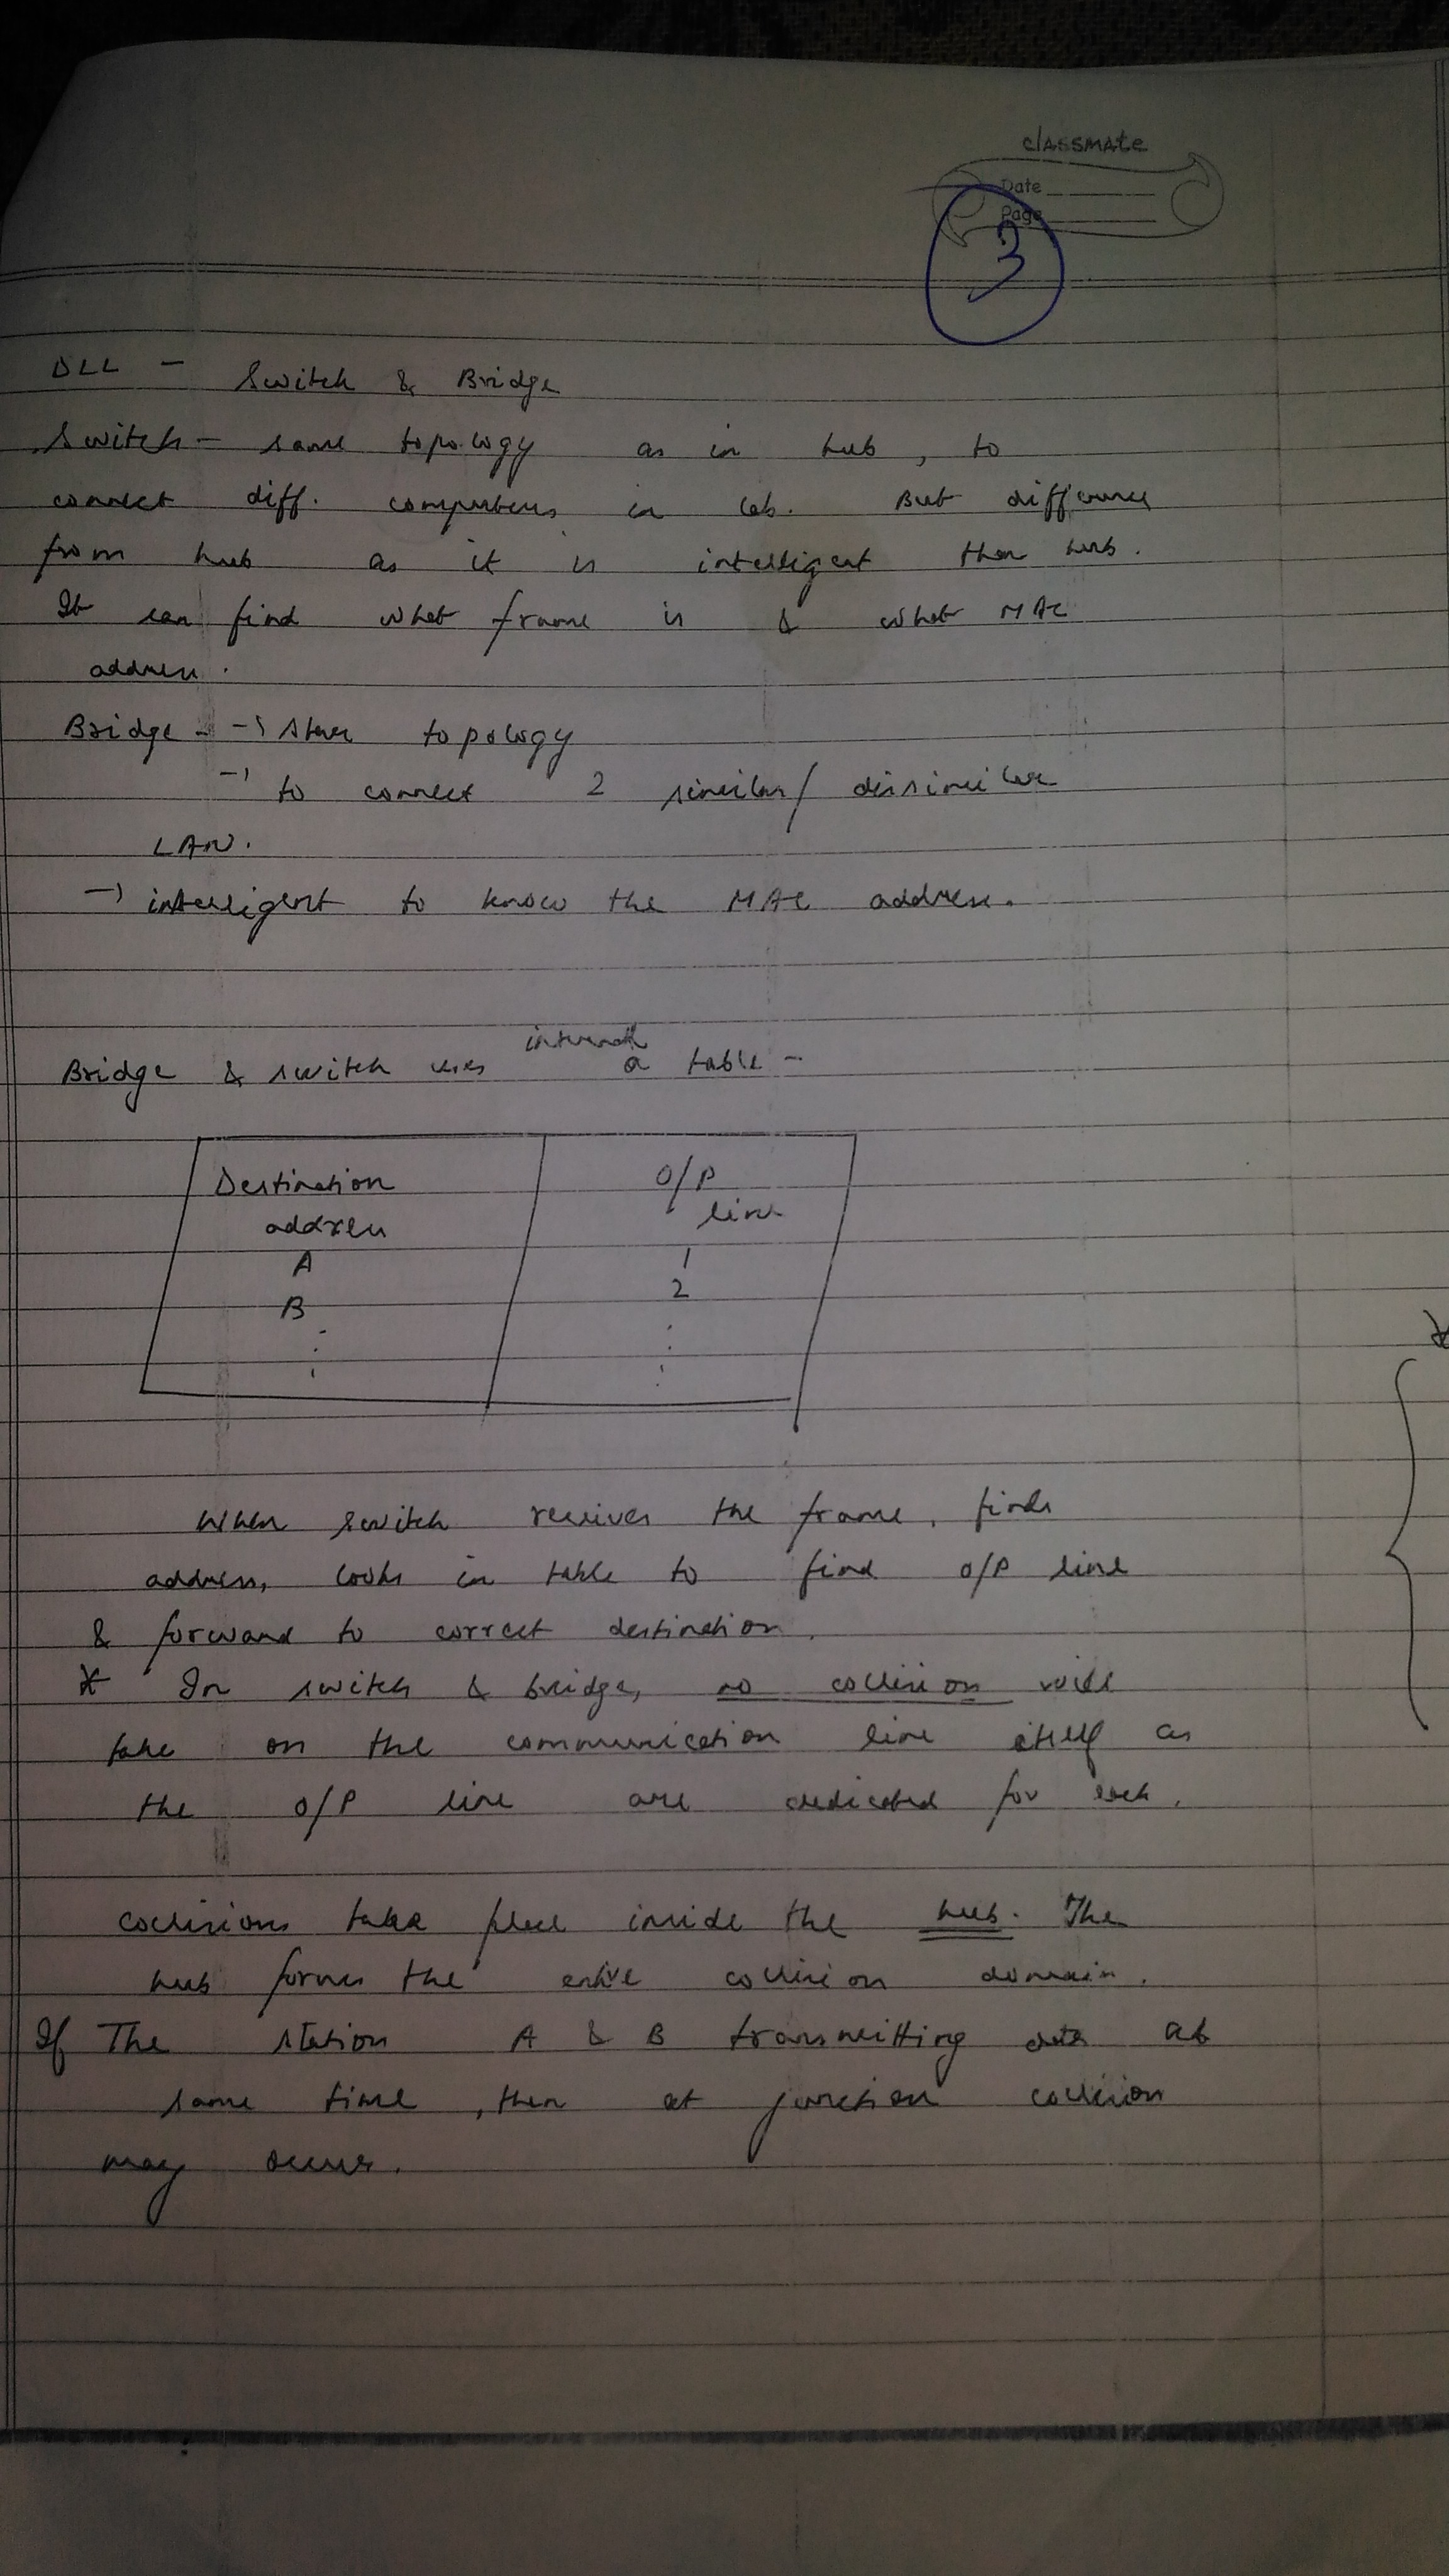 classmate
Date
Page
3
DLL - Switch & Bridge
Switch - same topology as in hub, to
connect diff. computers in lab. But difference
from hub as it is intelligent than hub.
It can find what frame is & what MAC
address.
Bridge - → topology
→ to connect 2 similar/ dissimilar
LAN.
→ intelligent to know the MAC address.
Bridge & switch uses a table -
Destination O/P
address line
A 1
B 2
When switch receives the frame, finds
address, looks in table to find O/P line
& forward to correct destination.
* In switch & bridge, no collision will
take on the communication line itself as
the O/P line are dedicated for each.
collisions take place inside the hub. The
hub forms the entire collision domain.
If The station A & B transmitting data at
same time, then at junction collision
may occur.